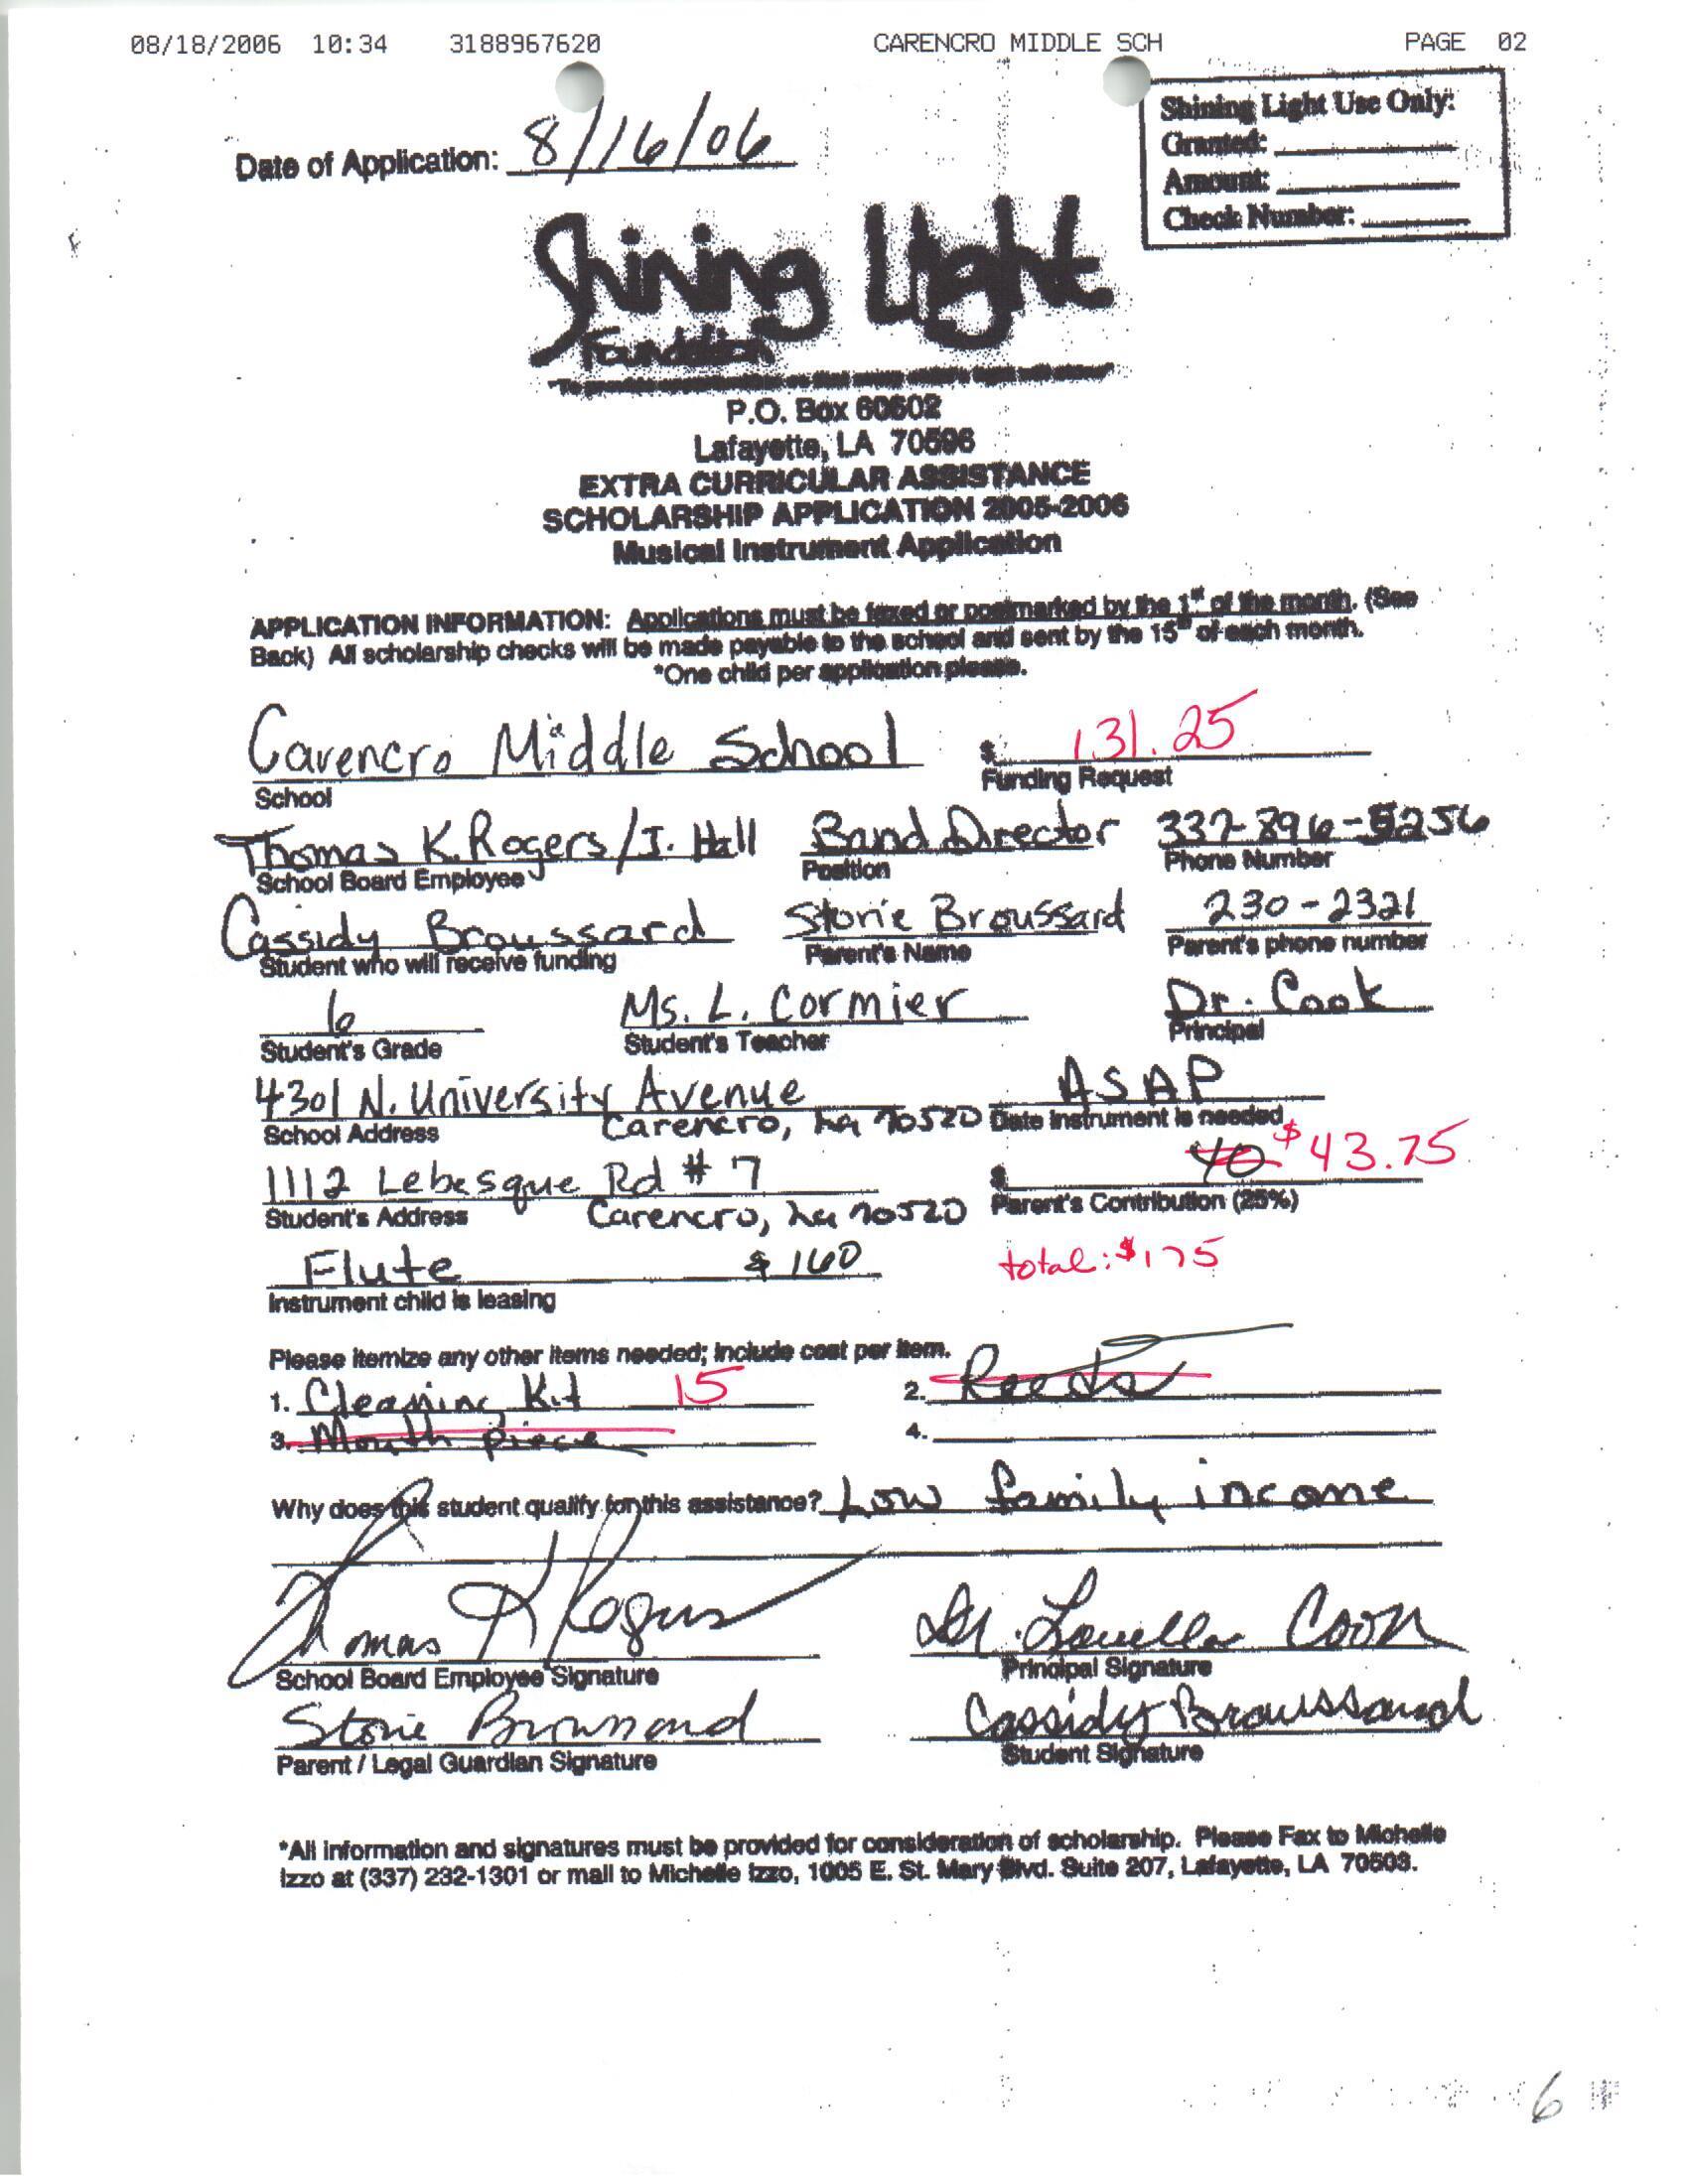 08/18/2006 10:34 3188967620 CARENCRO MIDDLE SCH PAGE 02
Shining Light Use Only:
Granted:
Amount:
Check Number:
Date of Application: 8/16/06
Shining Light
Foundation
P.O. Box 60602
Lafayette, LA 70596
EXTRA CURRICULAR ASSISTANCE
SCHOLARSHIP APPLICATION 2005-2006
Musical Instrument Application
APPLICATION INFORMATION: Applications must be faxed or postmarked by the 1st of the month. (See
Back) All scholarship checks will be made payable to the school and sent by the 15th of each month.
*One child per application please.
Carencro Middle School $ 131.25
School Funding Request
Thomas K. Rogers/J. Hall Band Director 337-896-5256
School Board Employee Position Phone Number
Cassidy Broussard Storie Broussard 230-2321
Student who will receive funding Parent's Name Parent's phone number
6 Ms. L. Cormier Dr. Cook
Student's Grade Student's Teacher Principal
4301 N. University Avenue ASAP
School Address Carencro, La 70520 Date instrument is needed
1112 Lebesque Rd # 7 $ 40 $43.75
Student's Address Carencro, La 70520 Parent's Contribution (25%)
Flute $160 total: $175
Instrument child is leasing
Please itemize any other items needed; include cost per item.
1. Cleaning Kit 15 2. Reeds
3. Mouth piece 4.
Why does this student qualify for this assistance? Low family income
Thomas K Rogers Dr. Louella Cook
School Board Employee Signature Principal Signature
Storie Broussard Cassidy Broussard
Parent / Legal Guardian Signature Student Signature
*All information and signatures must be provided for consideration of scholarship. Please Fax to Michelle
Izzo at (337) 232-1301 or mail to Michelle Izzo, 1005 E. St. Mary Blvd. Suite 207, Lafayette, LA 70503.
6